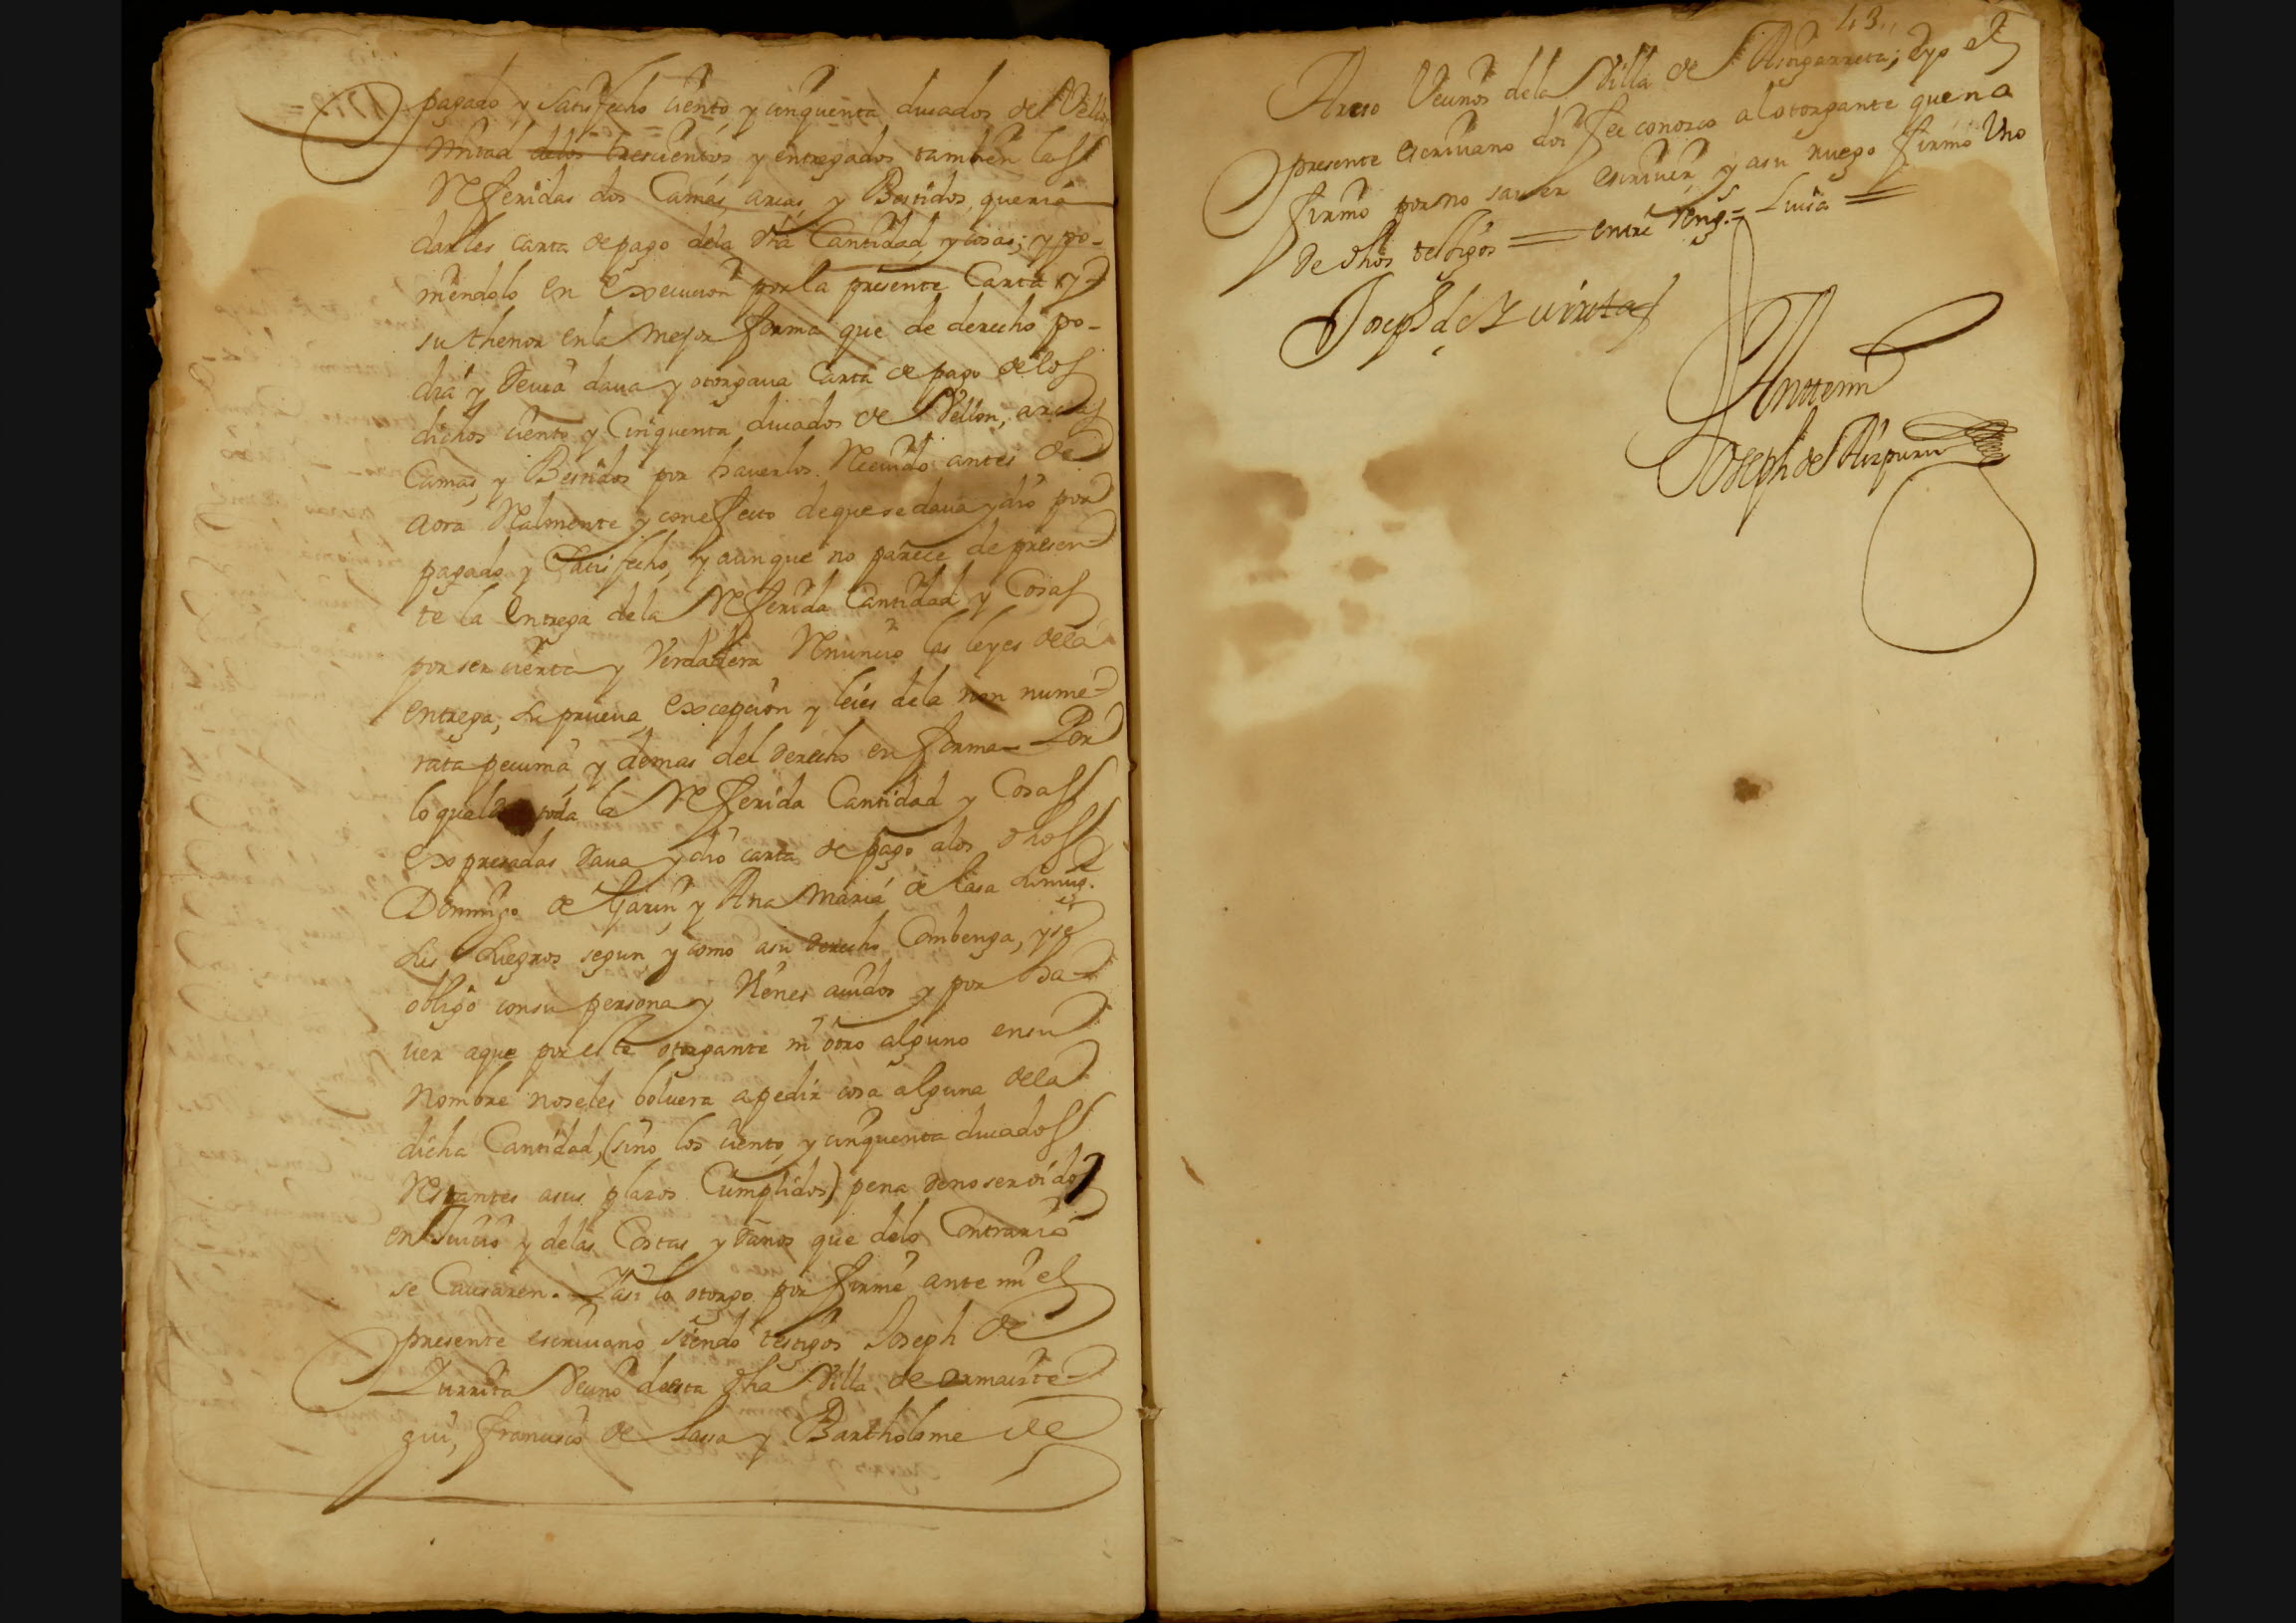 pagado y Satisfecho ciento y cinquenta ducados de Vellon
mitad delos trescientos y entregados tambien las
Referidas dos Camas, arcas, y Bestidos, queria
darles carta de pago dela dha Cantidad y cosas; y po-
niendolo en Execucion por la presente Carta y
su thenor en la mejor forma que de derecho po-
dia y deuia daua y otorgaua Carta de pago delos
dichos ciento y Cinquenta ducados de Vellon, arcas
Camas, y Bestidos por hauerlos Reciuido antes de
aora Realmente y con efecto de que se daua y dio por
pagado y Satisfecho, y aunque no parece de presen-
te la Entrega dela Referida Cantidad y Cosas
por ser cierta y Verdadera Renuncio las leyes dela
entrega, su prueua excepcion y leies dela non nume-
rata pecunia y demas del derecho en forma - Por
lo qual de toda la Referida Cantidad y Cosas
Expresadas daua y dio carta de pago alos dhos
Domingo de Garin y Ana Maria de Lasa su mug.er
sus suegros segun y como asu derecho Combenga, y se
obligo consu persona y Vienes auidos y por ha-
uer aque por este otorgante ni otro alguno ensu
Nombre noseles boluera apedir cosa alguna dela
dicha Cantidad, (sino los ciento y cinquenta ducados
Restantes asus plazos Cumplidos) pena de no ser oido
en Juicio y delas Costas y daños que delo Contrario
se Causaren. Y asi lo otorgo por firme ante mi el
presente escriuano siendo testigos Joseph de
Zurrita Vecino desta dha Villa de ormaizte-
gui, Francisco de Lassa y Bartholome de
43
Areso Vecinos dela Villa de Astigarreta; e yo el
presente escriuano doi fee conozco al otorgante que no
firmo por no sauer escriuir, y asu ruego firmó Uno
de dhos testigos = entre reng.s = Lucia =
Joseph de Zurrita
Ante mi
Joseph de Aizpuru